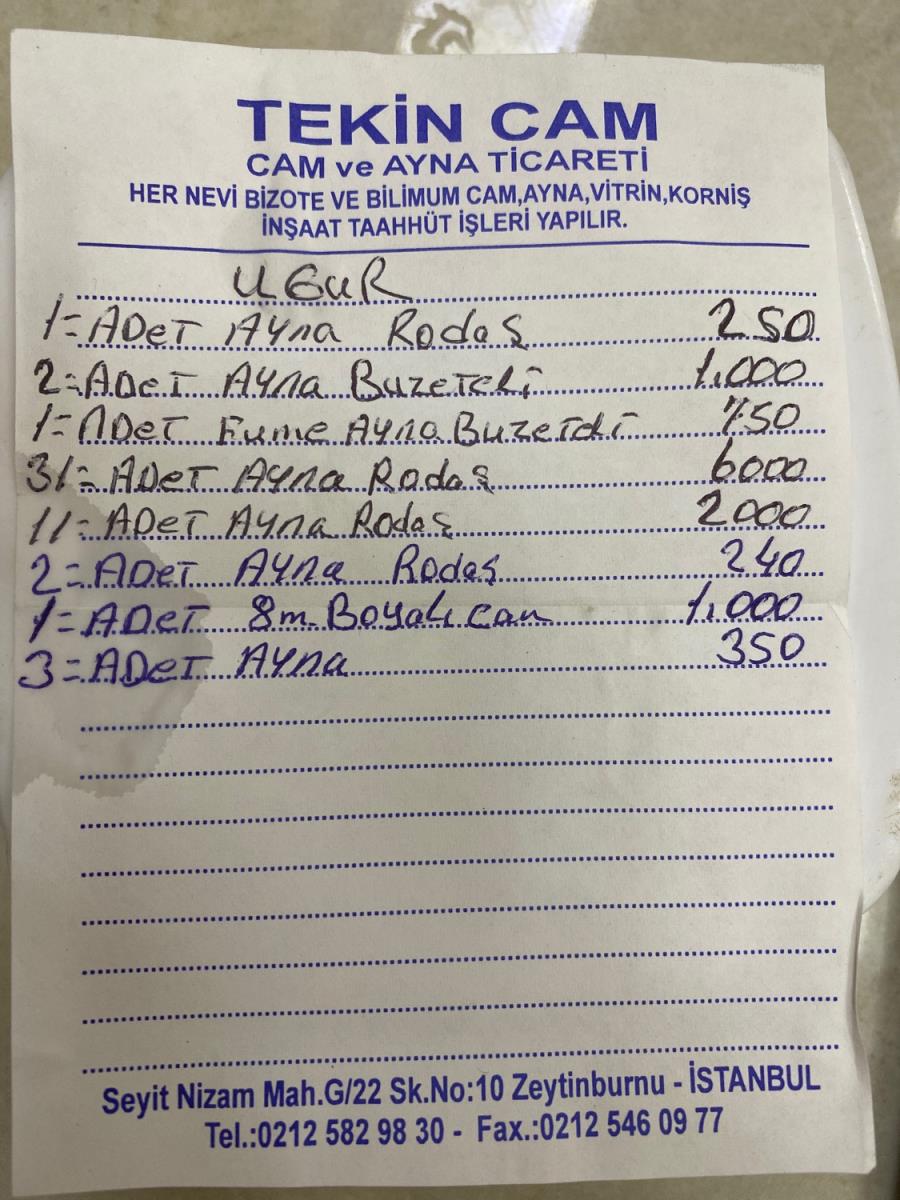 TEKİN CAM
CAM ve AYNA TİCARETİ
HER NEVİ BİZOTE VE BİLİMUM CAM,AYNA,VİTRİN,KORNİŞ
İNŞAAT TAAHHÜT İŞLERİ YAPILIR.
UGUR
1=ADeT AYna Rodaş 250
2=ADeT AYna Buzeteli 1.000
1=ADeT Fume AYna Buzetdi 750
31=ADeT AYna Rodaş 6000
11=ADeT AYna Rodaş 2000
2=ADeT AYna Rodaş 240
1=ADeT 8m.Boyalı cam 1.000
3=ADeT AYna 350
Seyit Nizam Mah.G/22 Sk.No:10 Zeytinburnu - İSTANBUL
Tel.:0212 582 98 30 - Fax.:0212 546 09 77